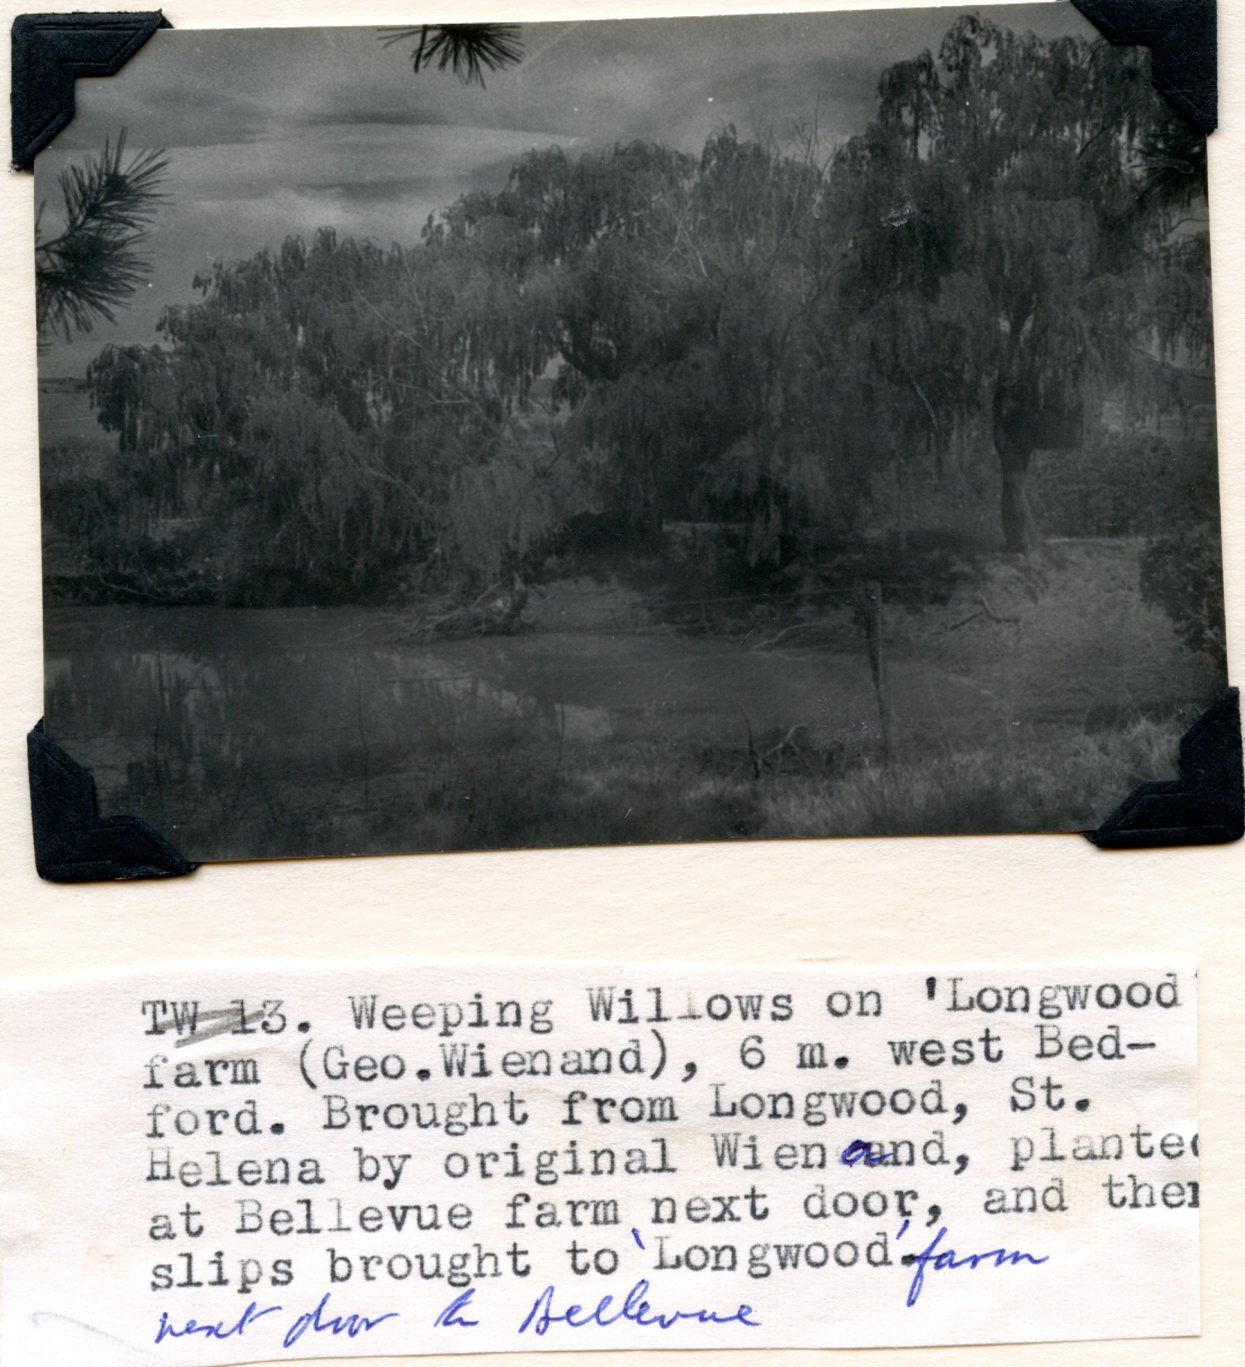 TW 13. Weeping Willows on 'Longwood'
farm (Geo.Wienand), 6 m. west Bed-
ford. Brought from Longwood, St.
Helena by original Wienand, planted
at Bellevue farm next door, and then
slips brought to 'Longwood' farm
next door to Bellevue